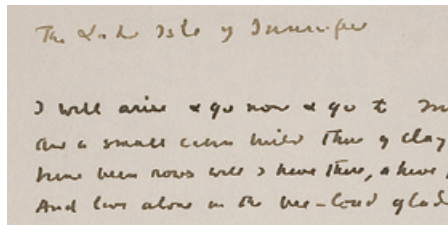 The Lake Isle of Innisfree
I will arise & go now & go to
And a small cabin build there of clay
Nine bean rows will I have there, a hive
And live alone in the bee-loud glad